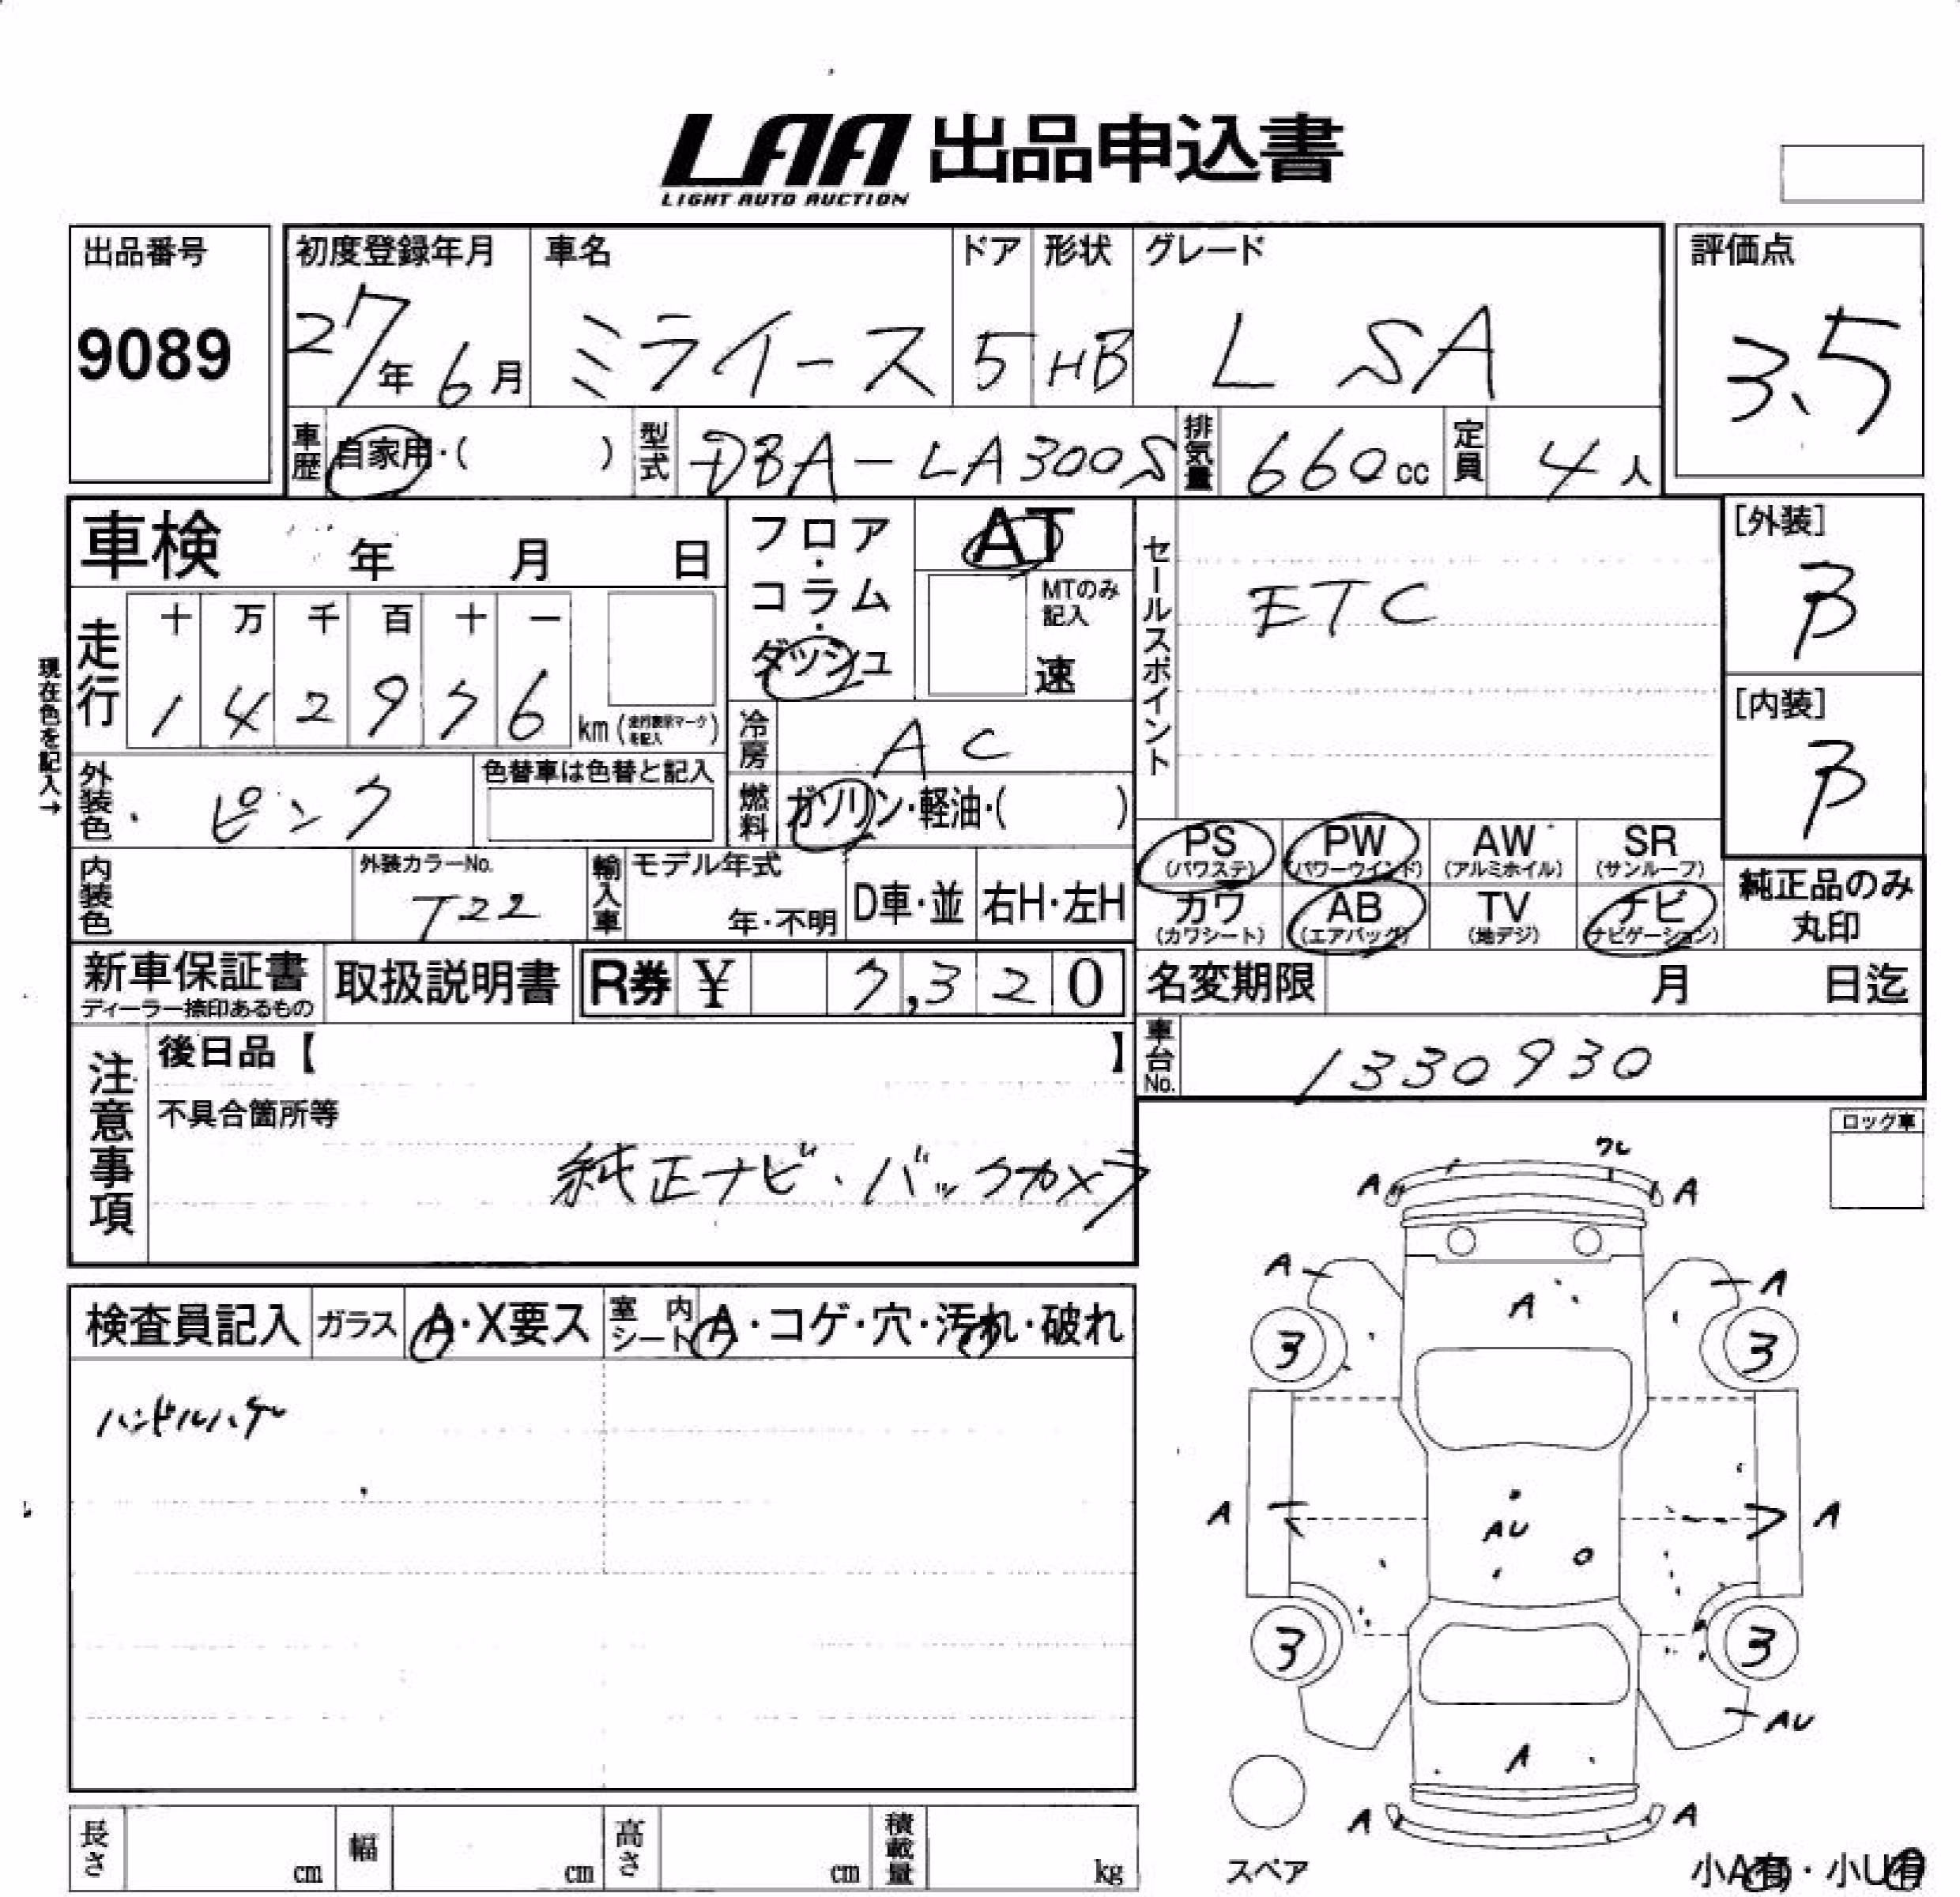 LAA 出品申込書
LIGHT AUTO AUCTION
出品番号
9089
初度登録年月
27年6月
車名
ミライース
ドア
5
形状
HB
グレード
L SA
評価点
3.5
車歴 自家用・( )
型式 DBA-LA300S
排気量 660cc
定員 4人
車検 年 月 日
走行
十 万 千 百 十 一
1 4 2 9 7 6 km(走行表示マークを記入)
現在色を記入→
外装色・ピンク
色替車は色替と記入
内装色
外装カラーNo.
T22
輸入車
モデル年式
年・不明
D車・並
右H・左H
フロア・コラム・ダッシュ
AT
MTのみ記入
速
冷房 AC
燃料 ガソリン・軽油・( )
セールスポイント
ETC
[外装]
B
[内装]
B
PS (パワステ)
PW (パワーウインド)
AW (アルミホイル)
SR (サンルーフ)
カワ (カワシート)
AB (エアバッグ)
TV (地デジ)
ナビ (ナビゲーション)
純正品のみ丸印
新車保証書
ディーラー捺印あるもの
取扱説明書
R券 ¥ 7,320
名変期限 月 日迄
車台No. 1330930
注意事項
後日品【 】
不具合箇所等
純正ナビ・バックカメラ
検査員記入
ガラス A・X要ス
室内シート A・コゲ・穴・汚れ・破れ
ハンドルハゲ
ロッグ車
ワレ
A A
A A
A
3 3
A A
AU
3 3
AU
A
A A
スペア
小A有・小U有
長さ cm
幅 cm
高さ cm
積載量 kg